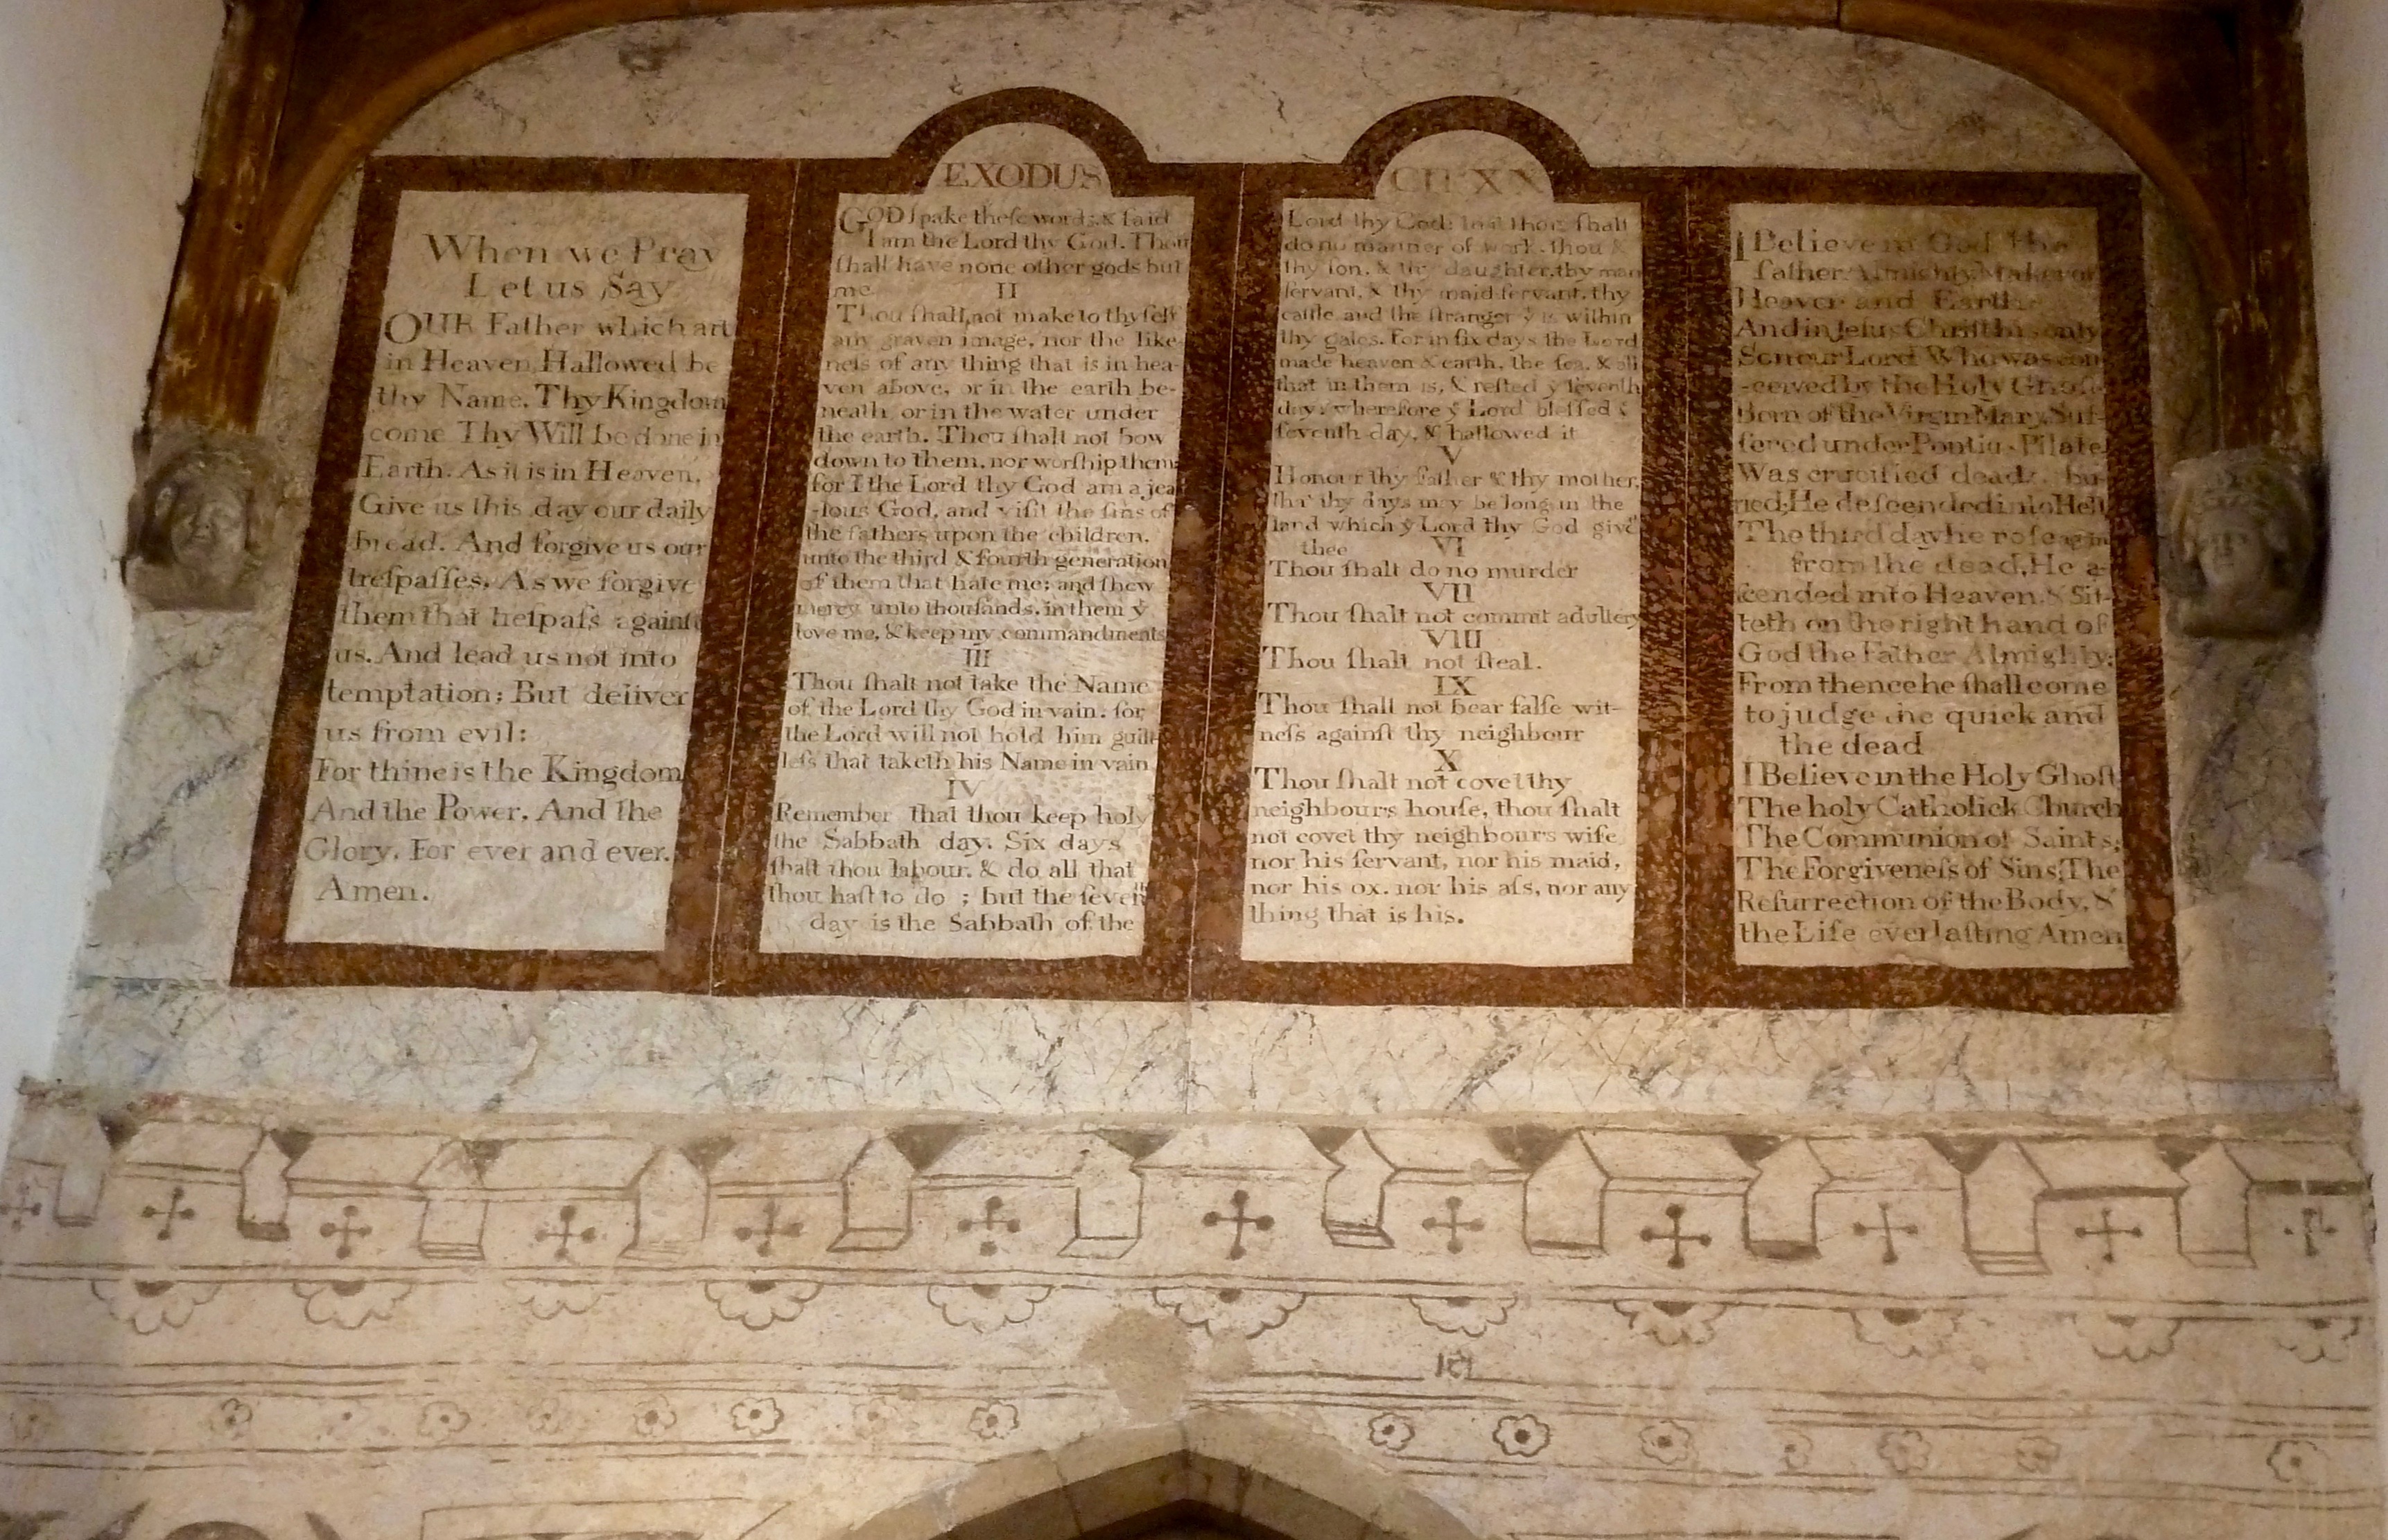 When we Pray
Let us Say
OUR Father which art
in Heaven, Hallowed be
thy Name. Thy Kingdom
come Thy Will be done in
Earth. As it is in Heaven.
Give us this day our daily
bread. And forgive us our
treſpaſſes. As we forgive
them that treſpaſs againſt
us. And lead us not into
temptation; But deliver
us from evil:
For thine is the Kingdom
And the Power. And the
Glory. For ever and ever.
Amen.
EXODUS
GOD ſpake theſe words, & ſaid
I am the Lord thy God. Thou
ſhalt have none other gods but
me
II
Thou ſhalt not make to thy ſelf
any graven image, nor the like-
neſs of any thing that is in hea-
ven above, or in the earth be-
neath, or in the water under
the earth. Thou ſhalt not bow
down to them, nor worſhip them:
for I the Lord thy God am a jea
-lous God, and viſit the ſins of
the fathers upon the children.
unto the third & fourth generation
of them that hate me; and ſhew
mercy unto thouſands, in them ẏ
love me, & keep my commandments
III
Thou ſhalt not take the Name
of the Lord thy God in vain. for
the Lord will not hold him guilt
leſs that taketh his Name in vain
IV
Remember that thou keep holy
the Sabbath day. Six days
ſhalt thou labour, & do all that
thou haſt to do ; but the ſeventh
day is the Sabbath of the
CH XX
Lord thy God: thou ſhalt
do no manner of work. thou &
thy ſon, & thy daughter, thy man
ſervant, & thy maid ſervant, thy
cattle and the ſtranger ẏ is within
thy gates. For in ſix days the Lord
made heaven & earth, the ſea, & all
that in them is, & reſted ẏ ſeventh
day: wherefore ẏ Lord bleſſed ẏ
ſeventh day, & hallowed it
V
Honour thy father & thy mother,
that thy days may be long in the
land which ẏ Lord thy God givͭʰ
thee
VI
Thou ſhalt do no murder
VII
Thou ſhalt not commit adultery
VIII
Thou ſhalt not ſteal.
IX
Thou ſhalt not bear falſe wit-
neſs againſt thy neighbour
X
Thou ſhalt not covet thy
neighbours houſe, thou ſhalt
not covet thy neighbours wife
nor his ſervant, nor his maid,
nor his ox. nor his aſs, nor any
thing that is his.
I Believe in God the
father Almighty, Maker of
Heaven and Earth:
And in Jeſus Chriſt his only
Son our Lord Who was con
-ceived by the Holy Ghoſt
Born of the Virgin Mary, Suf-
fered under Pontius Pilate
Was crucified dead & bu-
ried; He deſcended into Hell
The third day he roſe again
from the dead, He a-
ſcended into Heaven. & Sit-
teth on the right hand of
God the Father Almighty;
From thence he ſhall come
to judge the quick and
the dead
I Believe in the Holy Ghoſt
The holy Catholick Church
The Communion of Saints;
The Forgiveneſs of Sins; The
Reſurrection of the Body, &
the Life everlaſting Amen